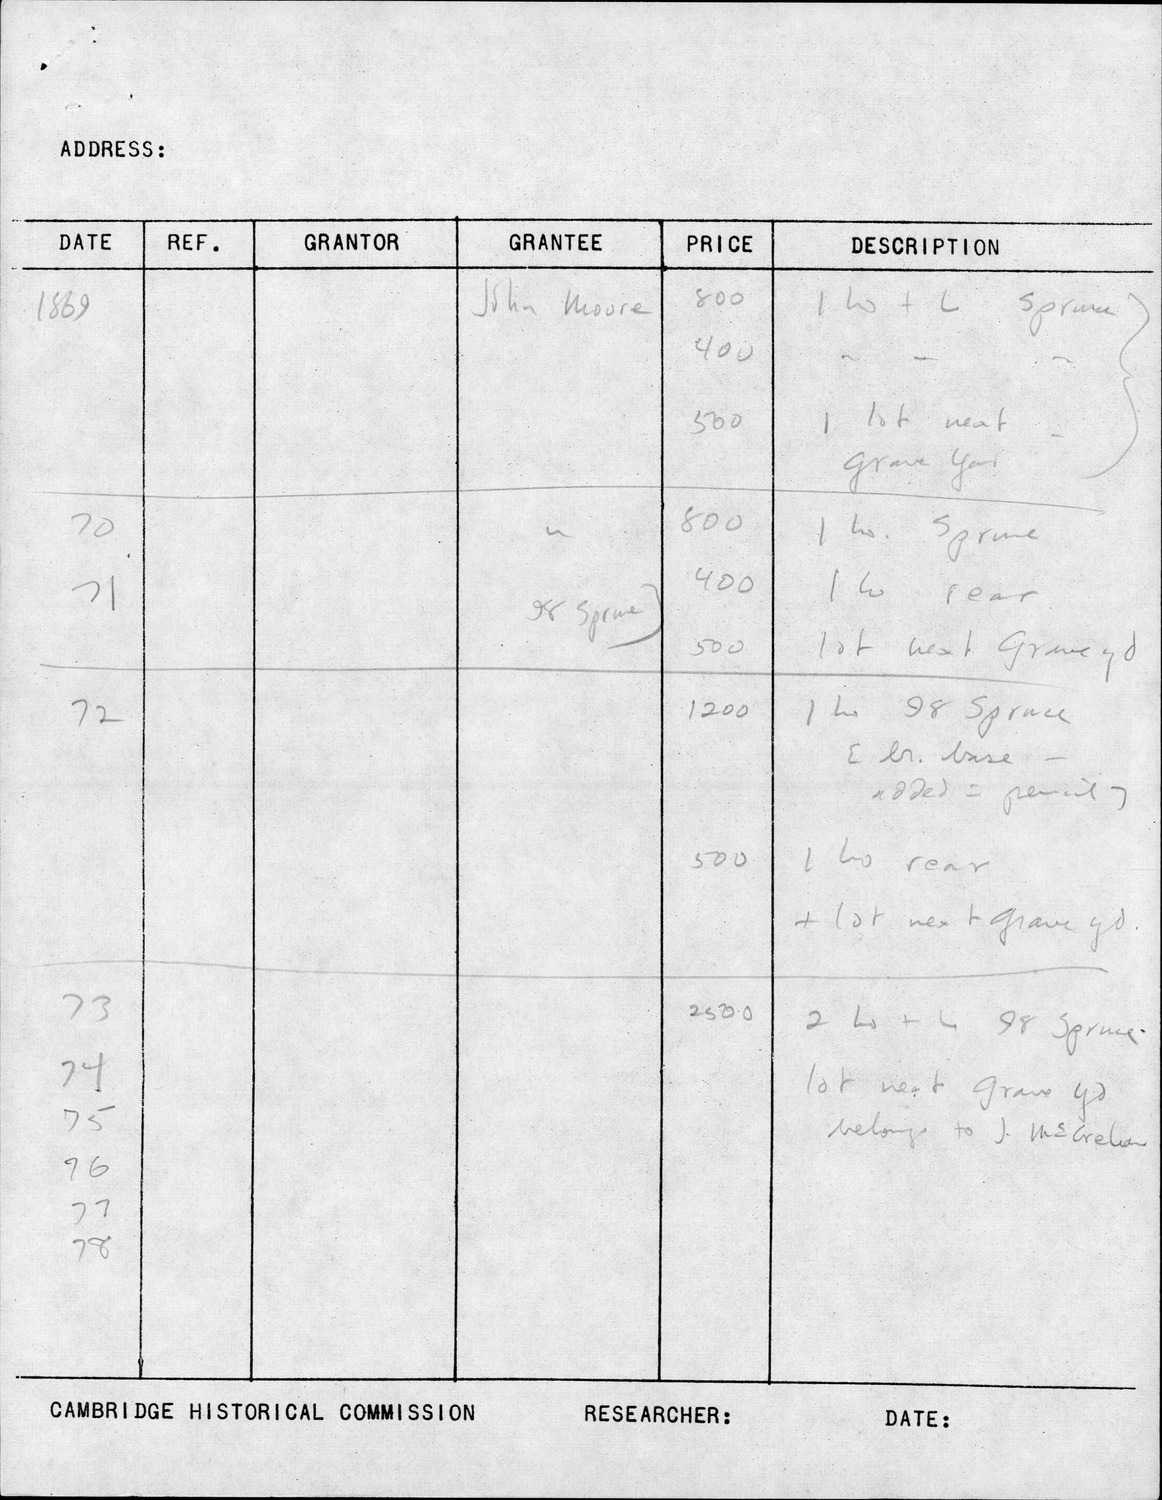 ADDRESS:
DATE REF. GRANTOR GRANTEE PRICE DESCRIPTION
1869 John Moore 800 1 ho + L Spruce
400 " " "
500 1 lot next "
Grave Yard
70 " 800 1 ho. Spruce
71 400 1 ho rear
98 Spruce
500 lot next Grave yd
72 1200 1 ho 98 Spruce
[ br. base -
added = pencil ]
500 1 ho rear
+ lot next Grave yd.
73 2500 2 ho + L 98 Spruce.
74 lot next Grave yd
75 belongs to J.
76
77
78
CAMBRIDGE HISTORICAL COMMISSION RESEARCHER: DATE: